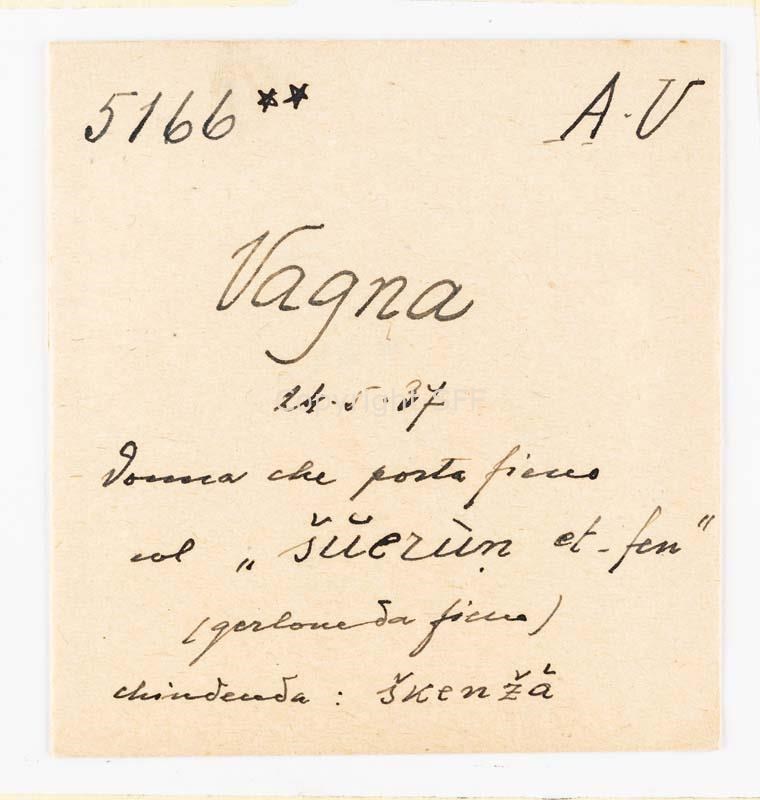 5166** A.V
Vagna
24.5.37
Donna che porta fieno
col „ šŭerùṇ et-fen"
(gerlone da fieno)
chindenda : škenžà